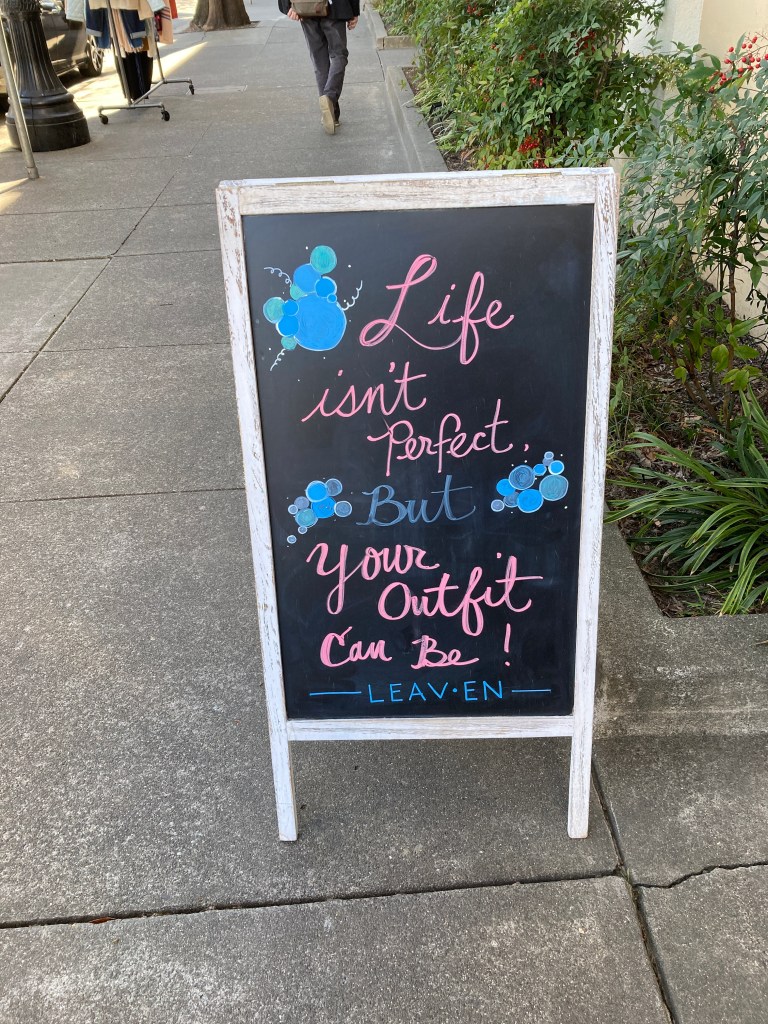 Life
isn't
Perfect,
But
Your
Outfit
Can Be!
LEAV·EN